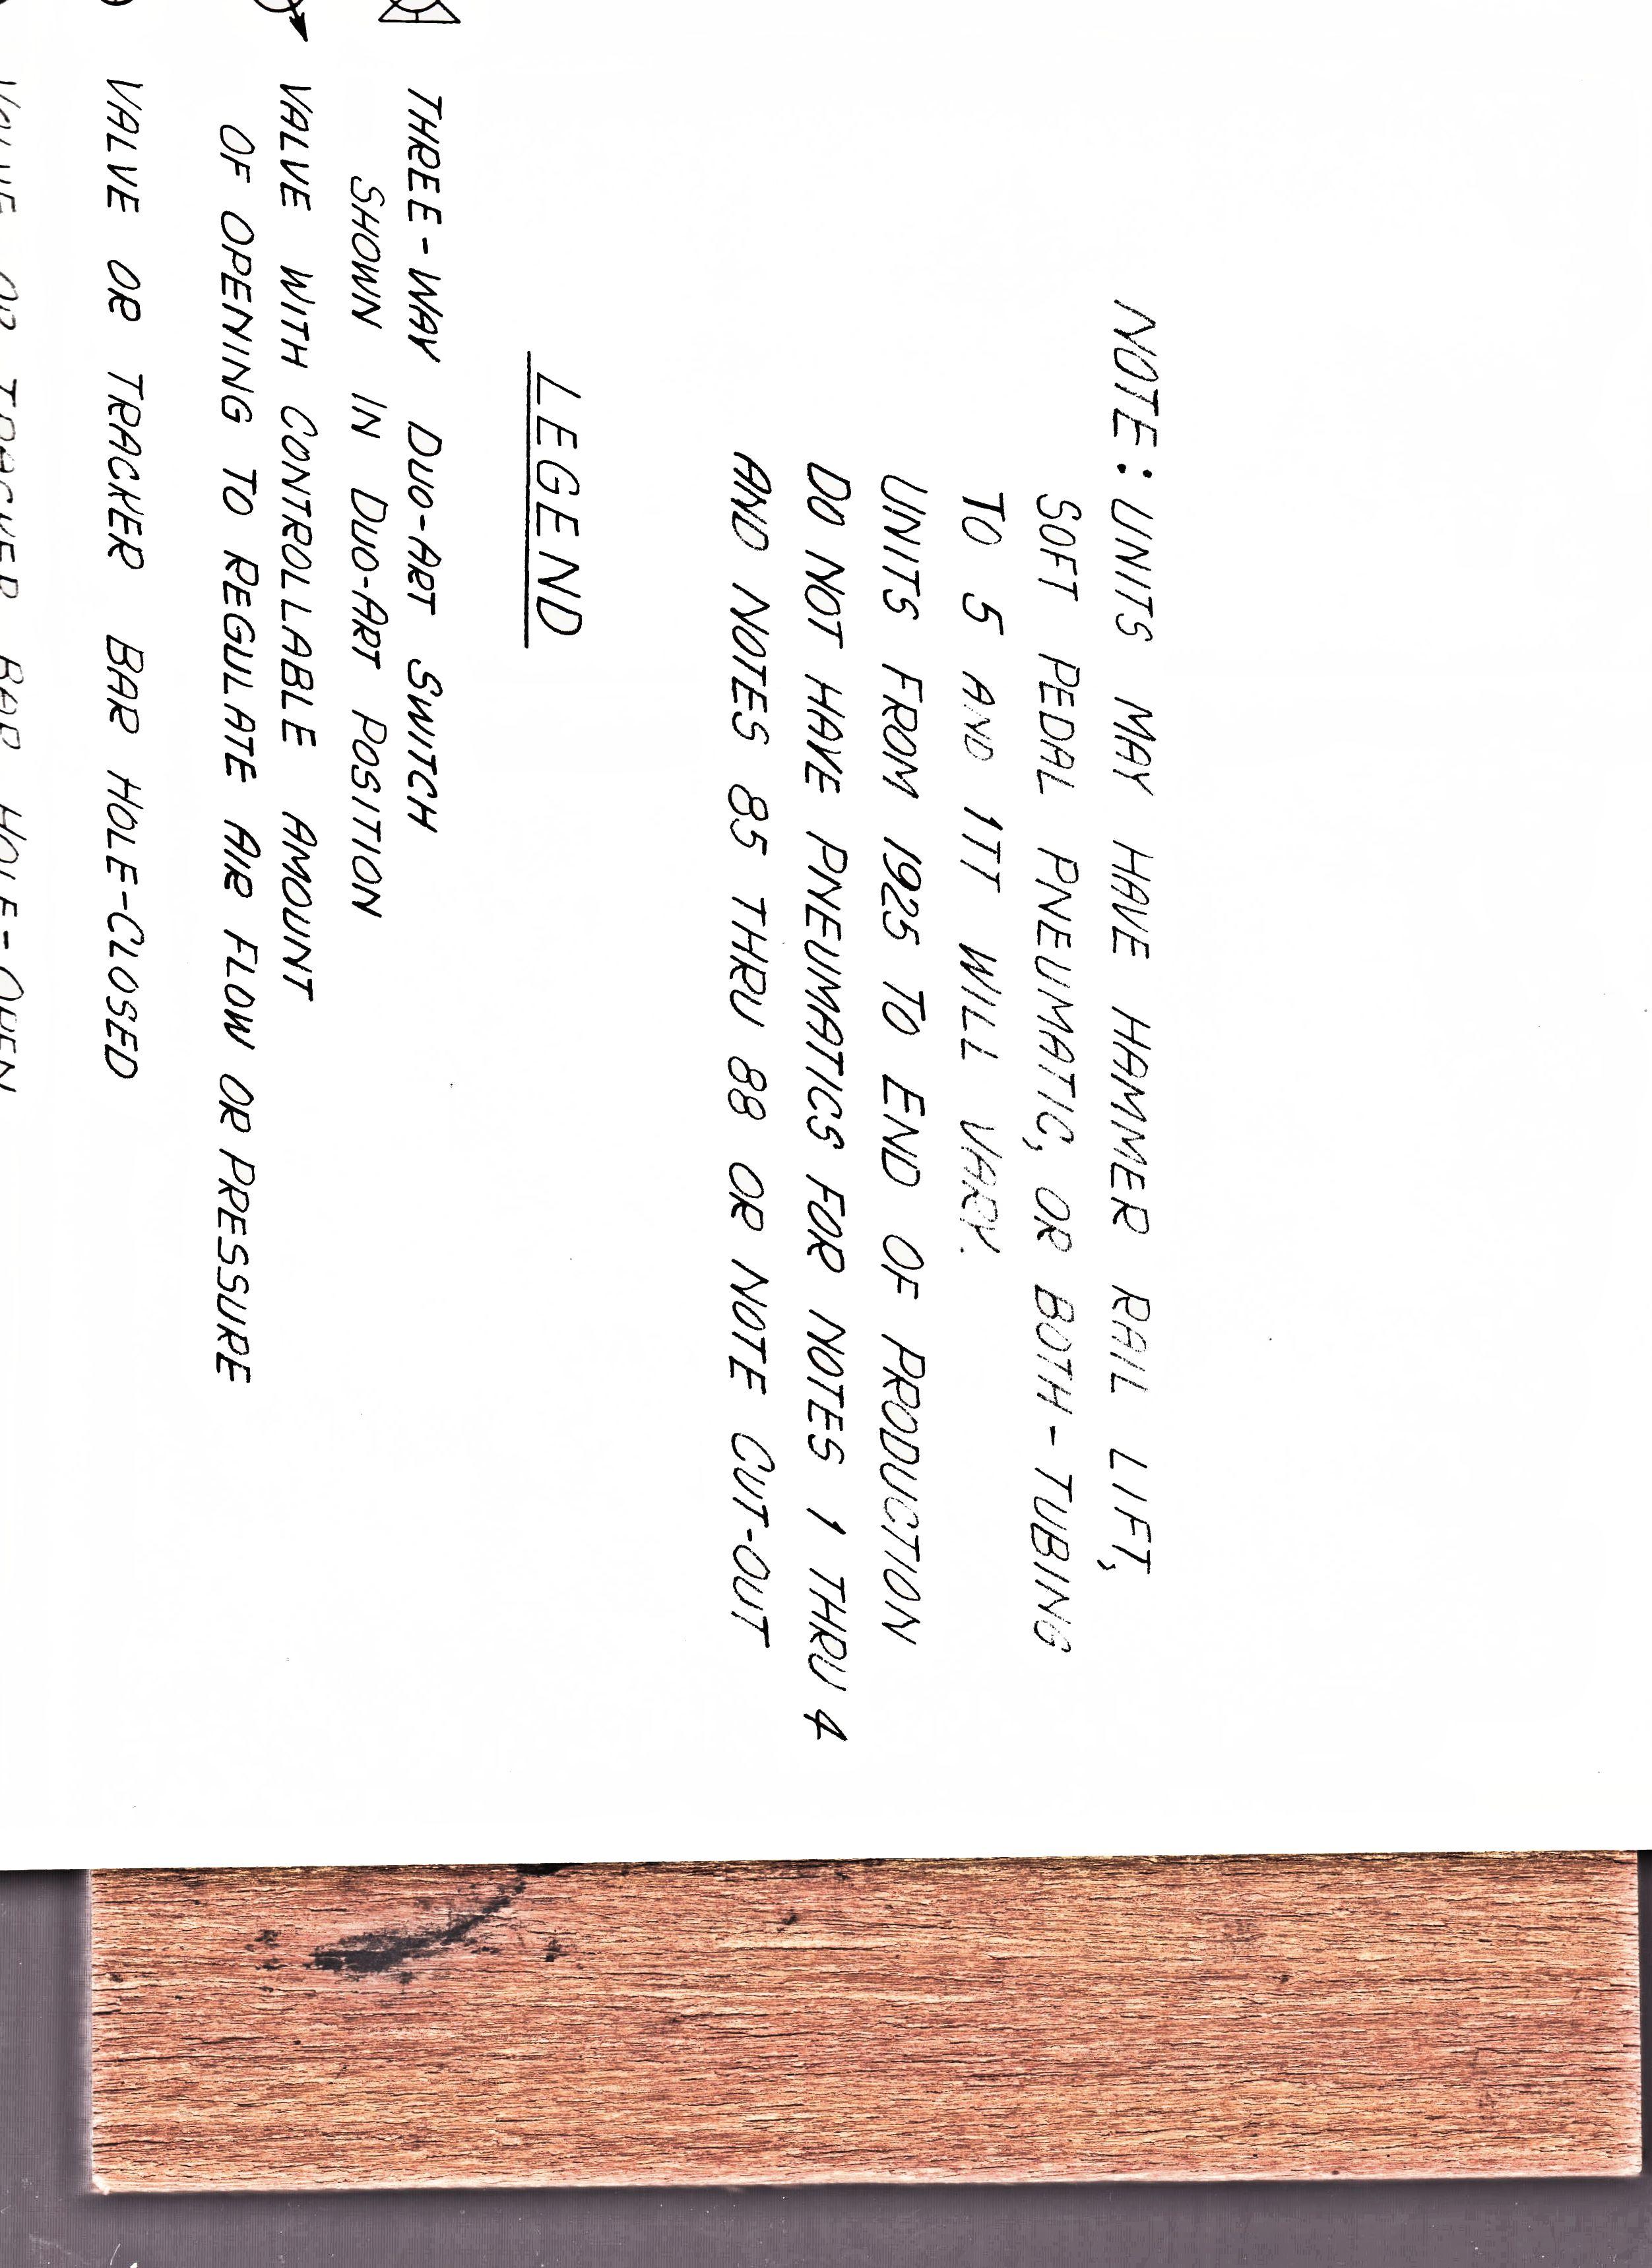 NOTE: UNITS MAY HAVE HAMMER RAIL LIFT,
SOFT PEDAL PNEUMATIC, OR BOTH - TUBING
TO 5 AND 1TT WILL VARY.
UNITS FROM 1925 TO END OF PRODUCTION
DO NOT HAVE PNEUMATICS FOR NOTES 1 THRU 4
AND NOTES 85 THRU 88 OR NOTE CUT-OUT
LEGEND
THREE-WAY DUO-ART SWITCH
SHOWN IN DUO-ART POSITION
VALVE WITH CONTROLLABLE AMOUNT
OF OPENING TO REGULATE AIR FLOW OR PRESSURE
VALVE OR TRACKER BAR HOLE-CLOSED
VALVE OR TRACKER BAR HOLE-OPEN